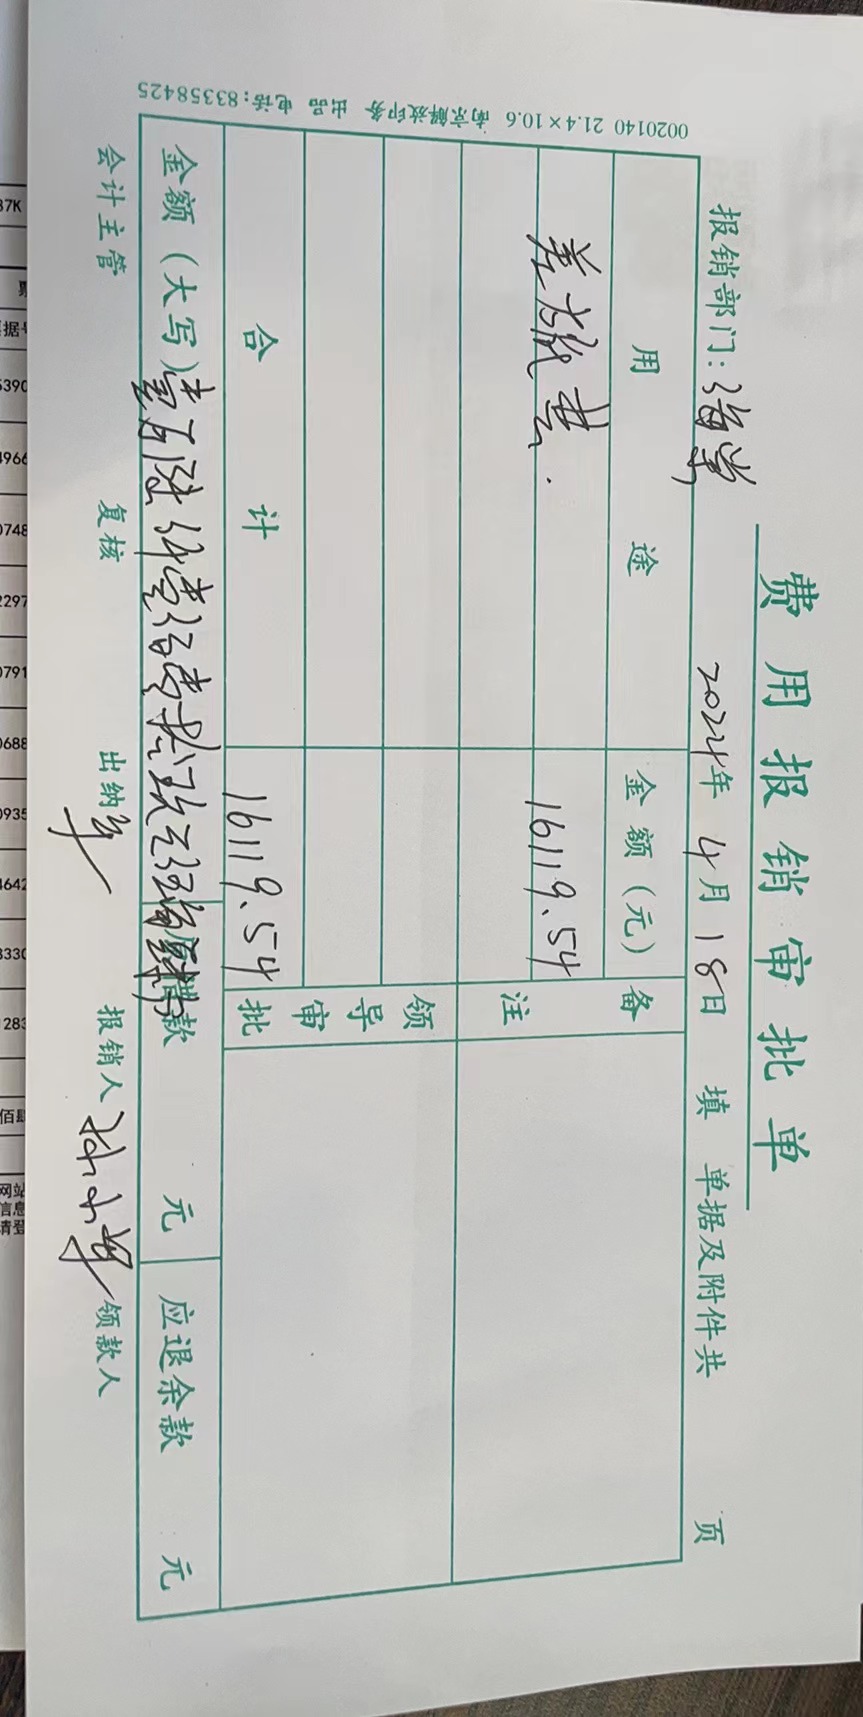 费用报销审批单
报销部门: 2024年 4月 18日 填 单据及附件共 页
用途 金额(元) 备注
差旅费. 16119.54
合计 16119.54 领导审批
金额(大写)壹万陆仟壹佰壹拾玖元伍角肆分 原借款 元 应退余款 元
会计主管 复核 出纳 报销人 领款人
0020140 21.4×10.6 南京解放印务 出品 电话:83358425
37K
票
据号
5390
4966
0748
2297
0791
0688
0935
4642
3330
1283
佰肆
网站
信息
请登